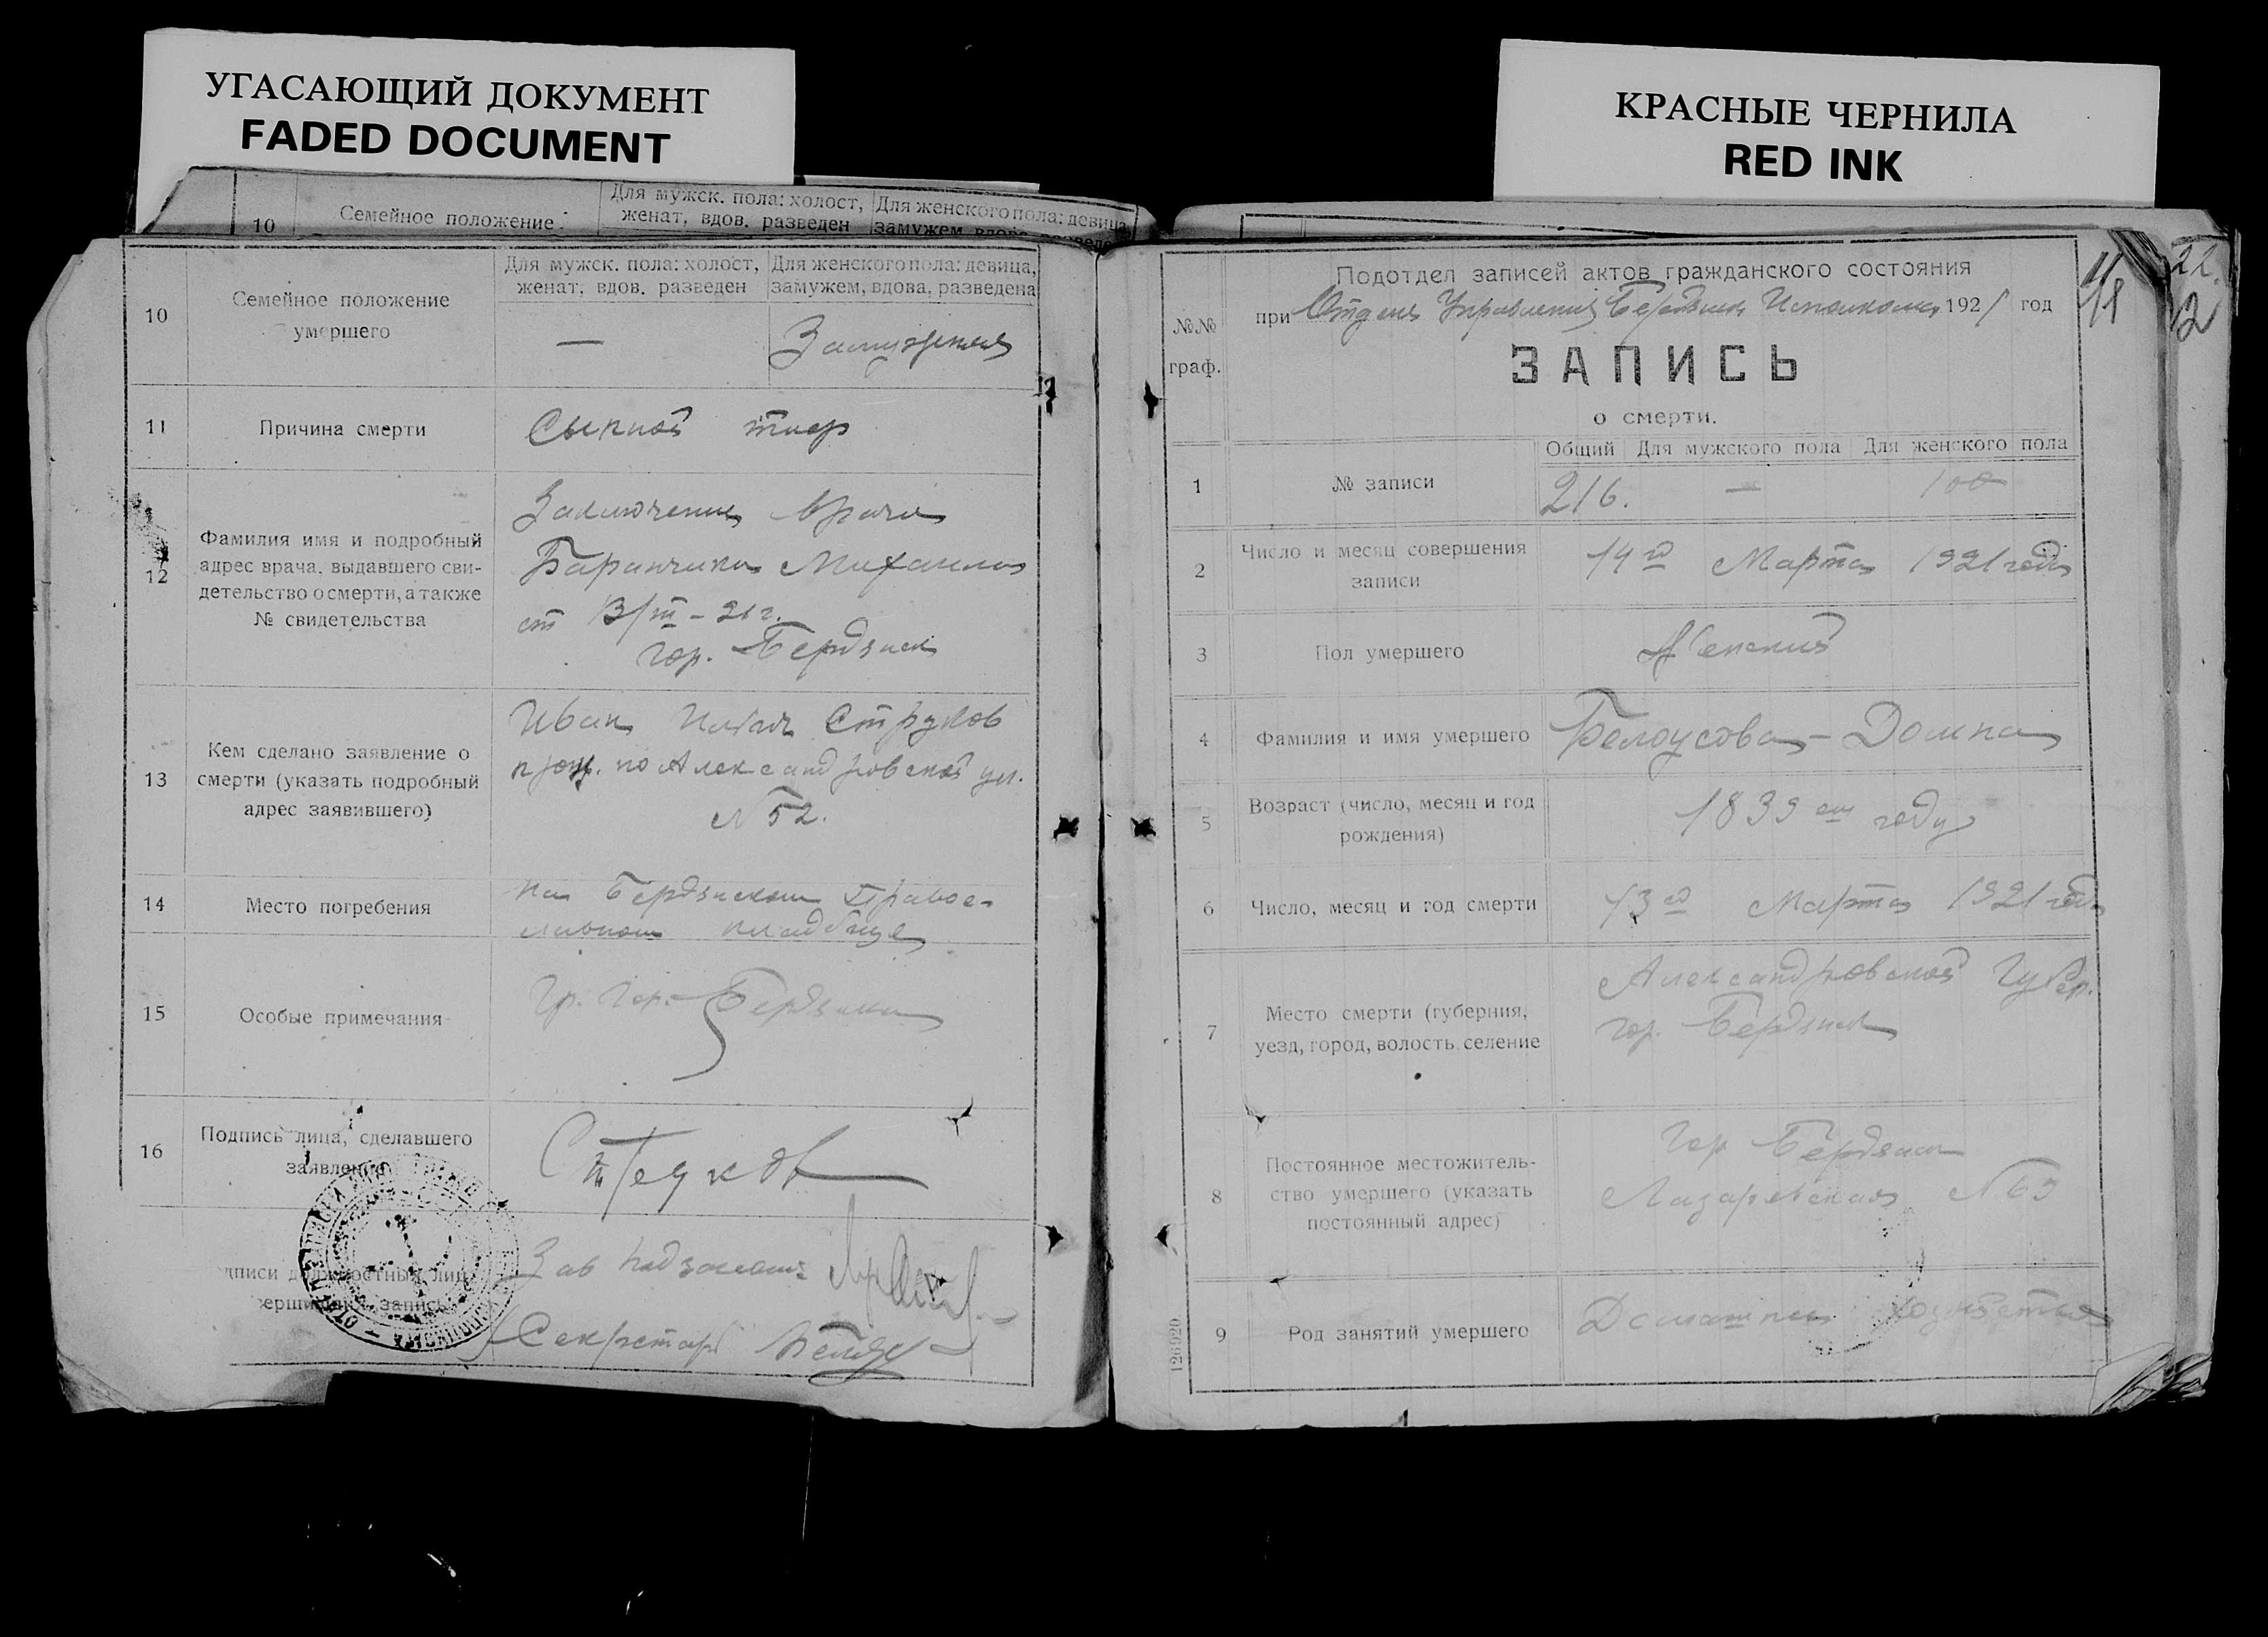 УГАСАЮЩИЙ ДОКУМЕНТ
FADED DOCUMENT
КРАСНЫЕ ЧЕРНИЛА
RED INK
10 Семейное положение Для мужск. пола: холост, Для женского пола: девица,
женат, вдов. разведен замужем
10 Семейное положение умершего
Для мужск. пола: холост, женат, вдов. разведен
Для женского пола: девица, замужем, вдова, разведена
— Замужняя
11 Причина смерти
Сыпной тиф
12 Фамилия имя и подробный
адрес врача, выдавшего сви-
детельство о смерти, а также
№ свидетельства
Заключение Врача
Баранчика Михаила
от 13/III – 21 г.
гор. Бердянск
13 Кем сделано заявление о
смерти (указать подробный
адрес заявившего)
Иван Струков
прож. по Александровской ул.
№ 52.
14 Место погребения
на Бердянском Правос-
лавном кладбище
15 Особые примечания
Гр. гор. Бердянска
16 Подпись лица, сделавшего
заявление
дписи должностных лиц
запись
Зав
Секретарь
11
22.
12
Подотдел записей актов гражданского состояния
при Отделе Управления Бердянск Исполкома 1921 год
№№
граф.
ЗАПИСЬ
о смерти.
Общий Для мужского пола Для женского пола
1 № записи 216. — 100
2 Число и месяц совершения
записи
14го Марта 1921 года
3 Пол умершего Женский
4 Фамилия и имя умершего Белоусова – Домна
5 Возраст (число, месяц и год
рождения)
1839 ом году
6 Число, месяц и год смерти 13го Марта 1921 года
7 Место смерти (губерния,
уезд, город, волость, селение
Александровской Губер.
гор. Бердянск
8 Постоянное местожитель-
ство умершего (указать
постоянный адрес)
гор Бердянск
Лазаревская № 69
9 Род занятий умершего
126020